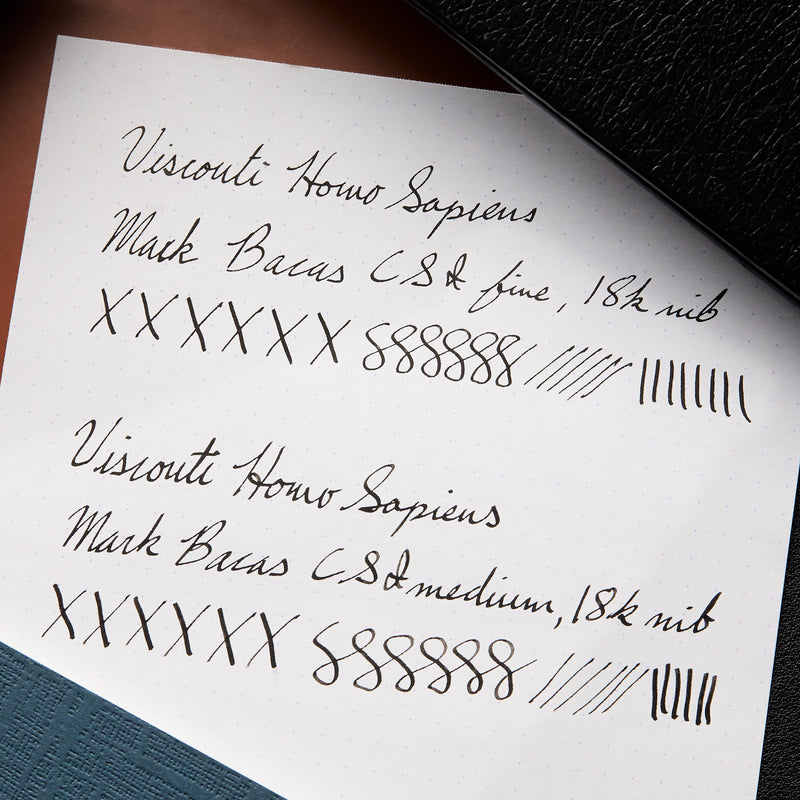 Visconti Homo Sapiens
Mark Bacas CSI fine, 18k nib
XXXXXX 888888 ////// ||||||||
Visconti Homo Sapiens
Mark Bacas CSI medium, 18k nib
XXXXXX 888888 ////// ||||||